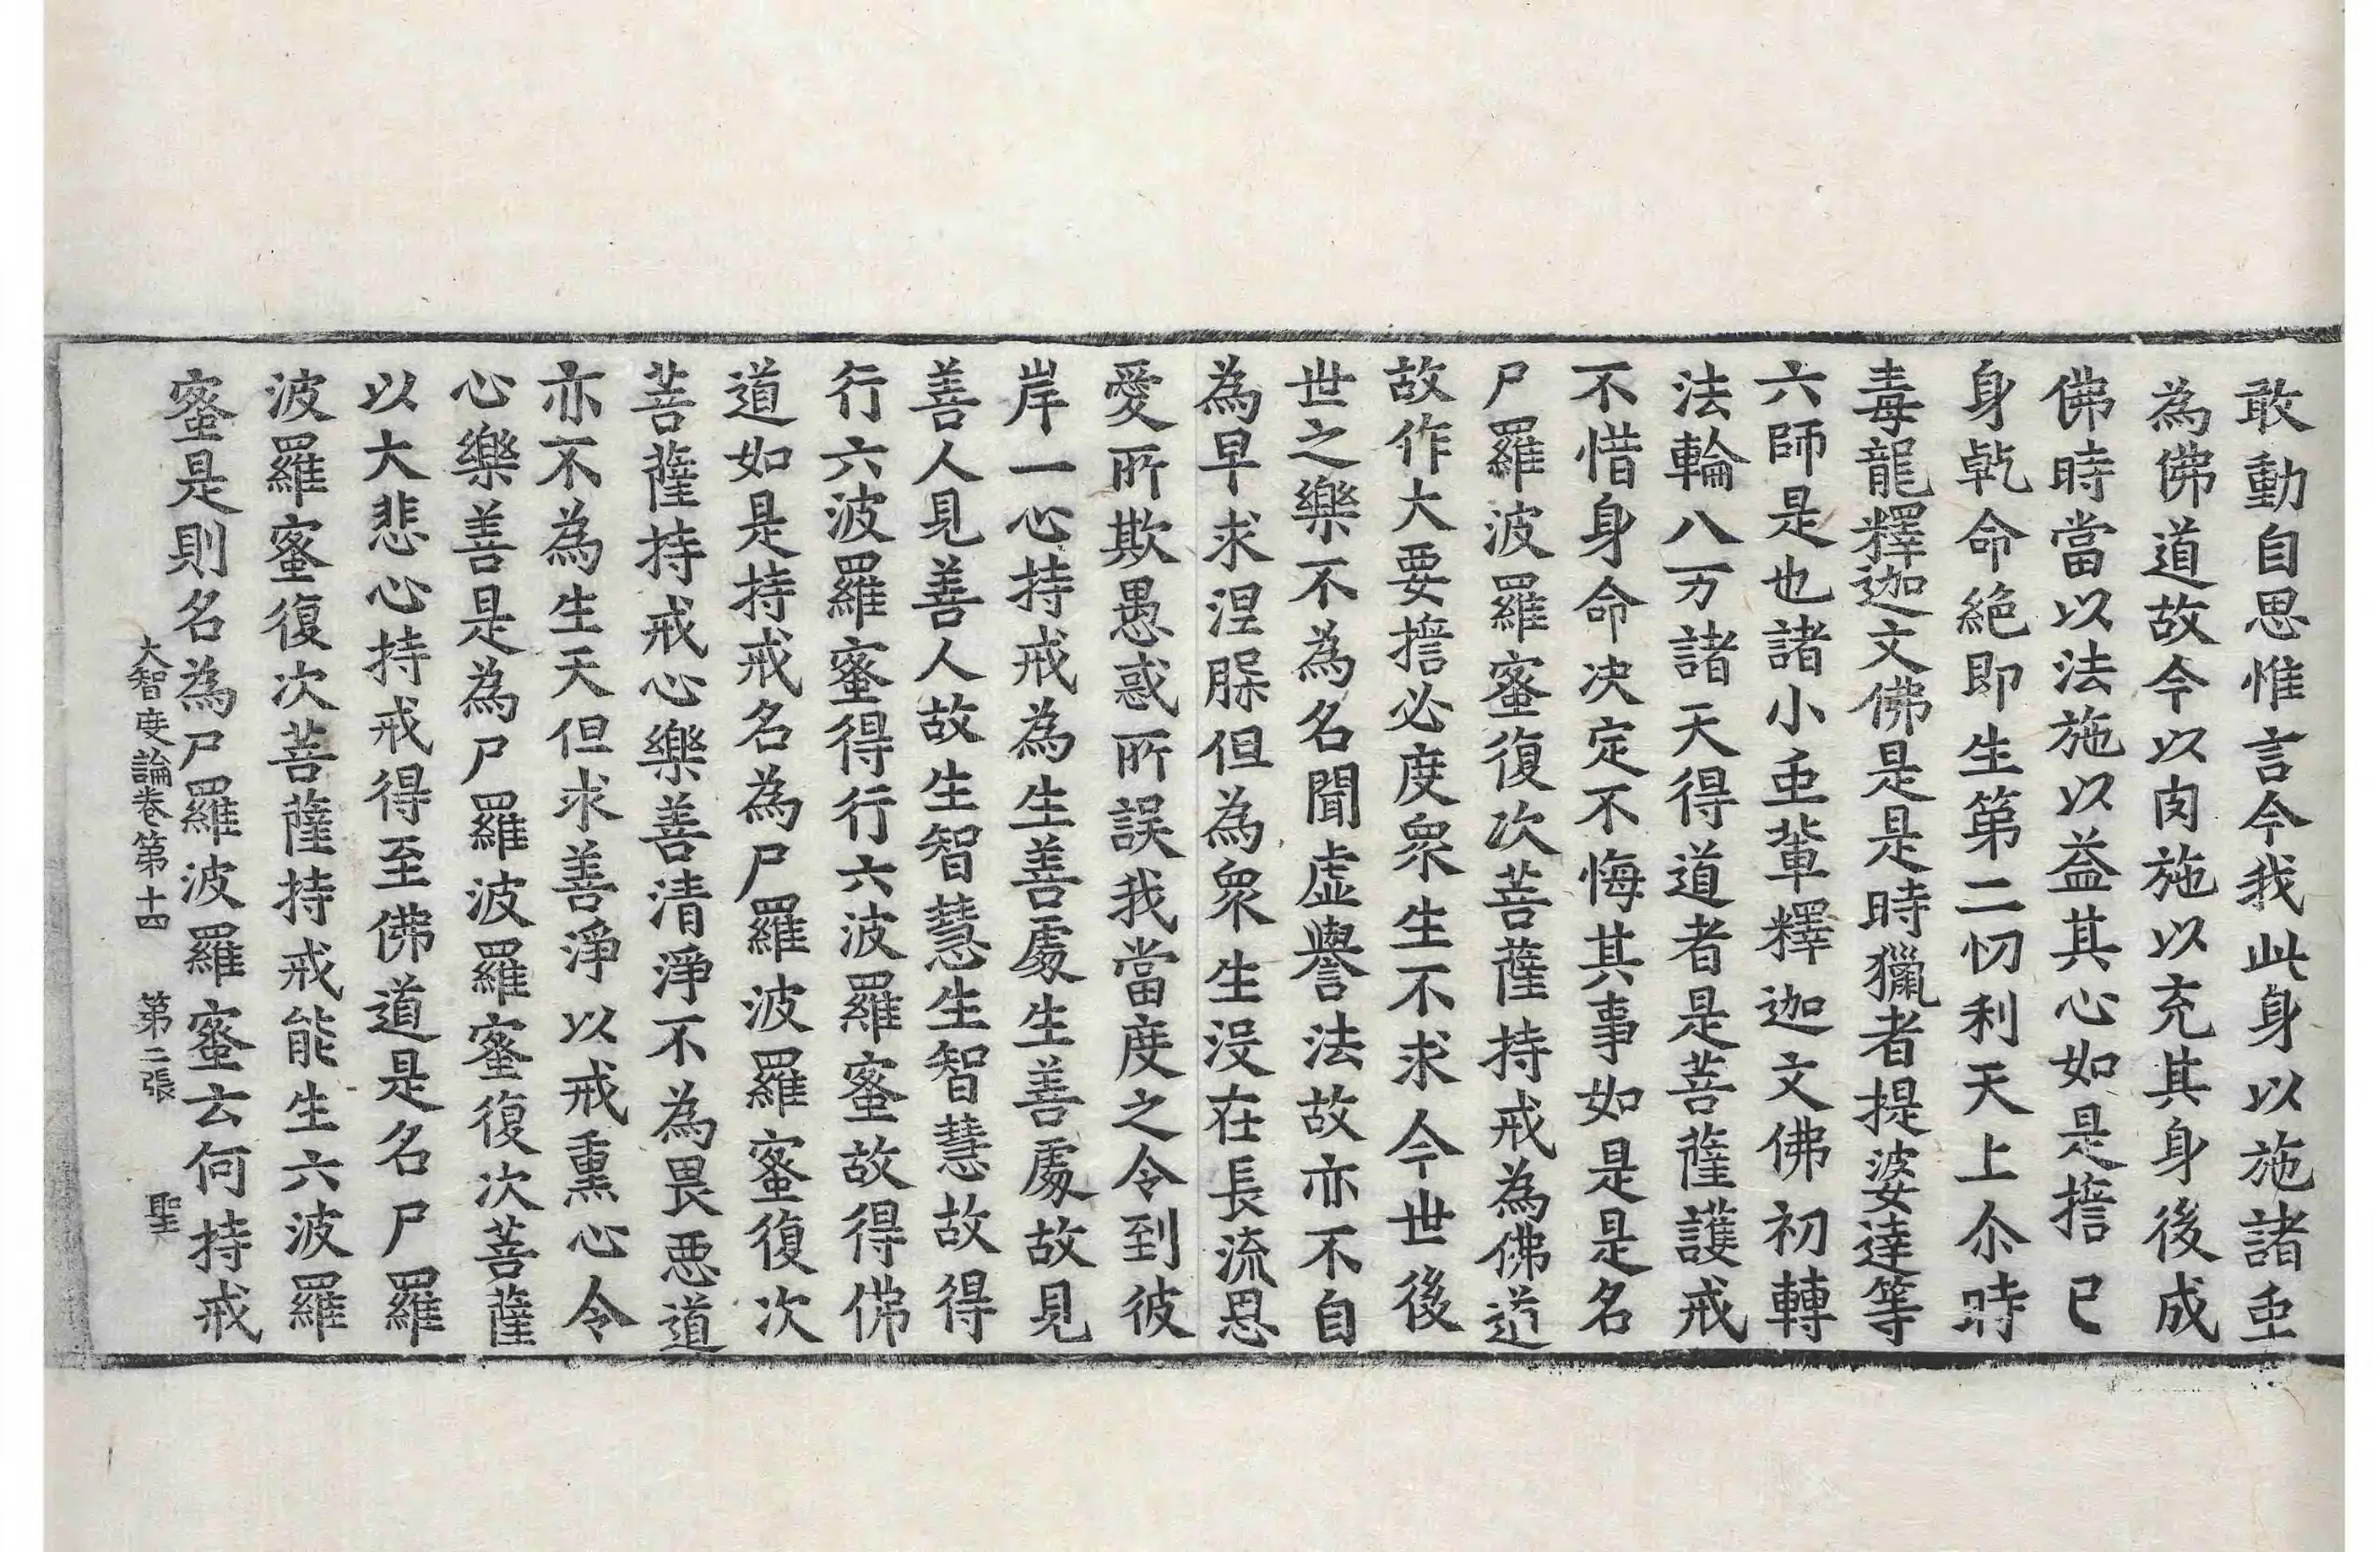 敢動自思惟言今我此身以施諸䖝
為佛道故今以肉施以充其身後成
佛時當以法施以益其心如是擔已
身乾命絶即生第二忉利天上尒時
毒龍釋迦文佛是是時獵者提婆達等
六師是也諸小䖝輩釋迦文佛初轉
法輪八万諸天得道者是菩薩護戒
不惜身命决定不悔其事如是是名
尸羅波羅蜜復次菩薩持戒為佛道
故作大要擔必度衆生不求今世後
世之樂不為名聞虛譽法故亦不自
為早求涅槃但為衆生没在長流恩
愛所欺愚惑所誤我當度之令到彼
岸一心持戒為生善處生善處故見
善人見善人故生智慧生智慧故得
行六波羅蜜得行六波羅蜜故得佛
道如是持戒名為尸羅波羅蜜復次
菩薩持戒心樂善清淨不為畏惡道
亦不為生天但求善淨以戒熏心令
心樂善是為尸羅波羅蜜復次菩薩
以大悲心持戒得至佛道是名尸羅
波羅蜜復次菩薩持戒能生六波羅
蜜是則名為尸羅波羅蜜云何持戒
大智度論卷第十四 第二張 聖